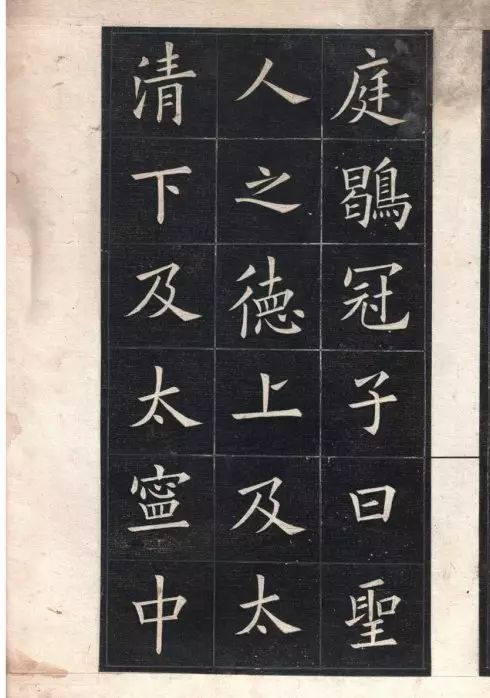 庭鶡冠子曰聖
人之徳上及太
清下及太寍中